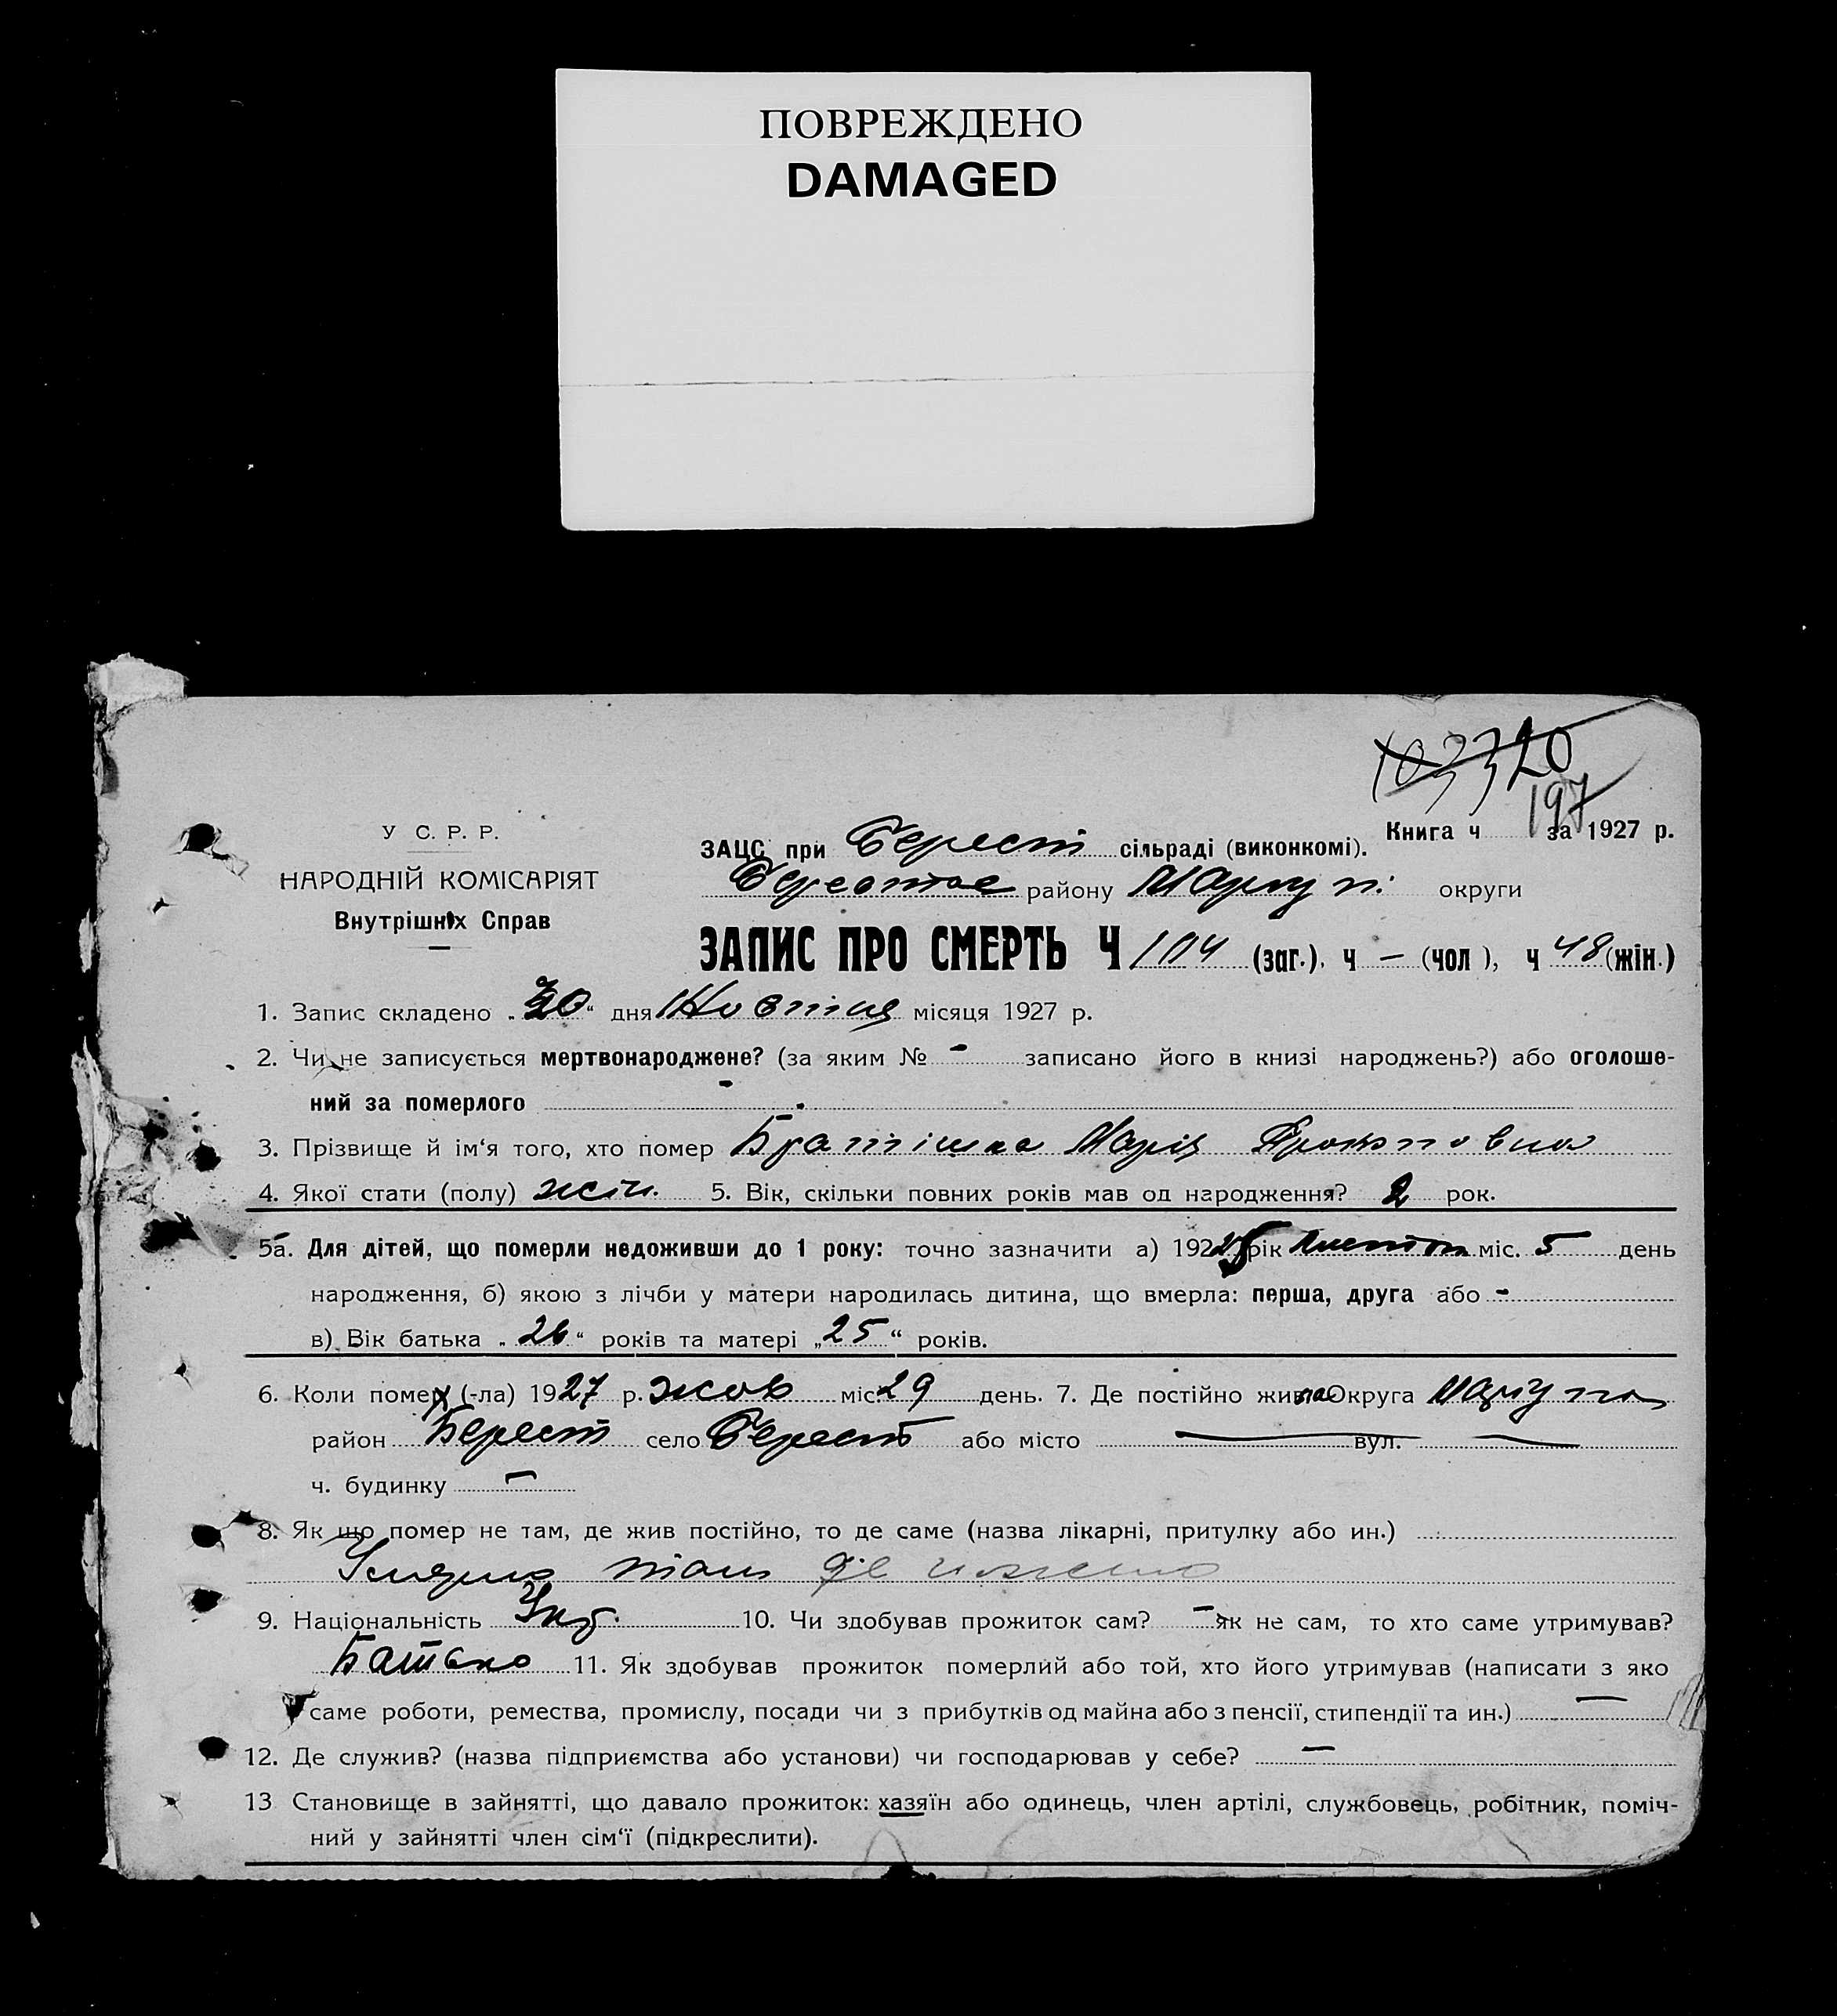 ПОВРЕЖДЕНО
DAMAGED
20
197
Книга ч за 1927 р.
У С. Р. Р.
НАРОДНІЙ КОМІСАРІЯТ
Внутрішніх Справ
ЗАЦС при Берест сільраді (виконкомі).
району Маріуп. округи
ЗАПИС ПРО СМЕРТЬ Ч 104 (заг.), ч — (чол ), ч 48 (жін.)
1. Запис складено „30“ дня Жовтня місяця 1927 р.
2. Чи не записується мертвонароджене? (за яким № - записано його в книзі народжень?) або оголоше-
ний за померлого -
3. Прізвище й ім‘я того, хто помер Братішка Марія Прокоповна
4. Якої стати (полу) жін. 5. Вік, скільки повних років мав од народження? 2 рок.
5а. Для дітей, що померли недоживши до 1 року: точно зазначити а) 1925 рік Листоп міс. 5 день
народження, б) якою з лічби у матери народилась дитина, що вмерла: перша, друга або -
в) Вік батька „26“ років та матері „25“ років.
6. Коли помер (-ла) 1927 р. жов міс 29 день. 7. Де постійно жила Округа Маріуп
район Берест село Берест або місто — вул. —
ч. будинку —
8. Як що помер не там, де жив постійно, то де саме (назва лікарні, притулку або ин.)
там де
9. Національність Укр. 10. Чи здобував прожиток сам? — як не сам, то хто саме утримував?
Батько 11. Як здобував прожиток померлий або той, хто його утримував (написати з яко
саме роботи, ремества, промислу, посади чи з прибутків од майна або з пенсії, стипендії та ин.) —
12. Де служив? (назва підприємства або установи) чи господарював у себе? —
13 Становище в зайнятті, що давало прожиток: хазяїн або одинець, член артілі, службовець, робітник, поміч-
ний у зайнятті член сім‘ї (підкреслити).